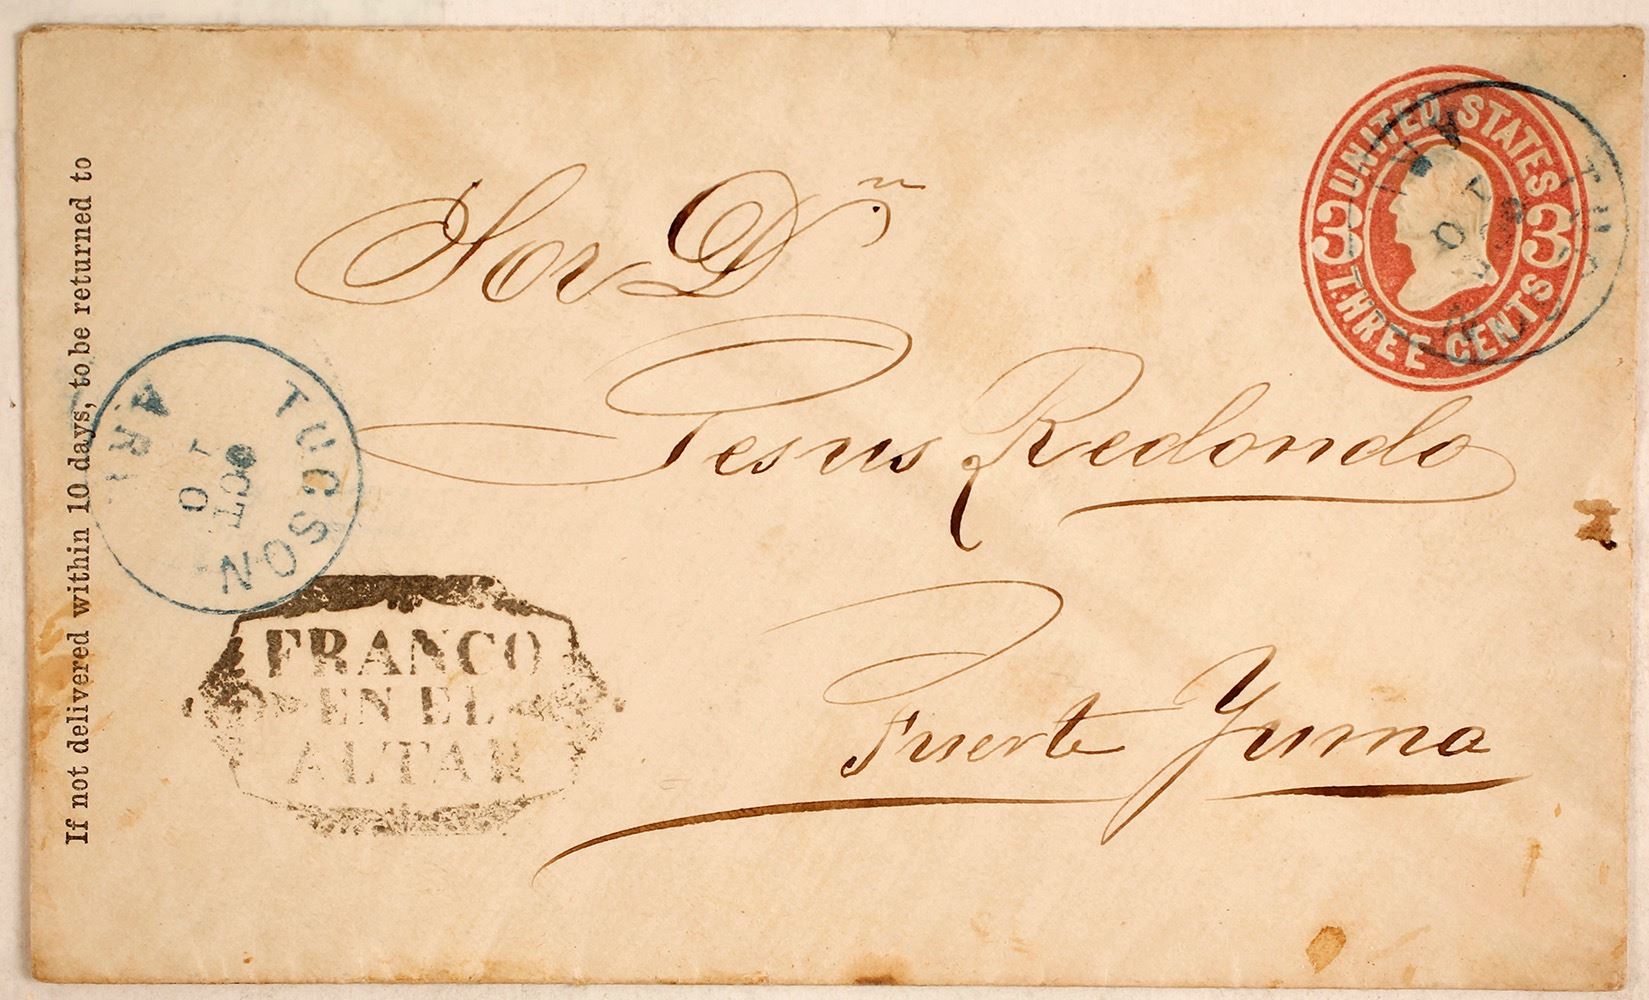 If not delivered within 10 days, to be returned to
UNITED STATES
3 3
THREE CENTS
TUCSON ARI
Sor Dn.
Jesus Redondo
Fuerte Yuma
TUCSON
ARI
OCT
10
FRANCO
EN EL
ALTAR